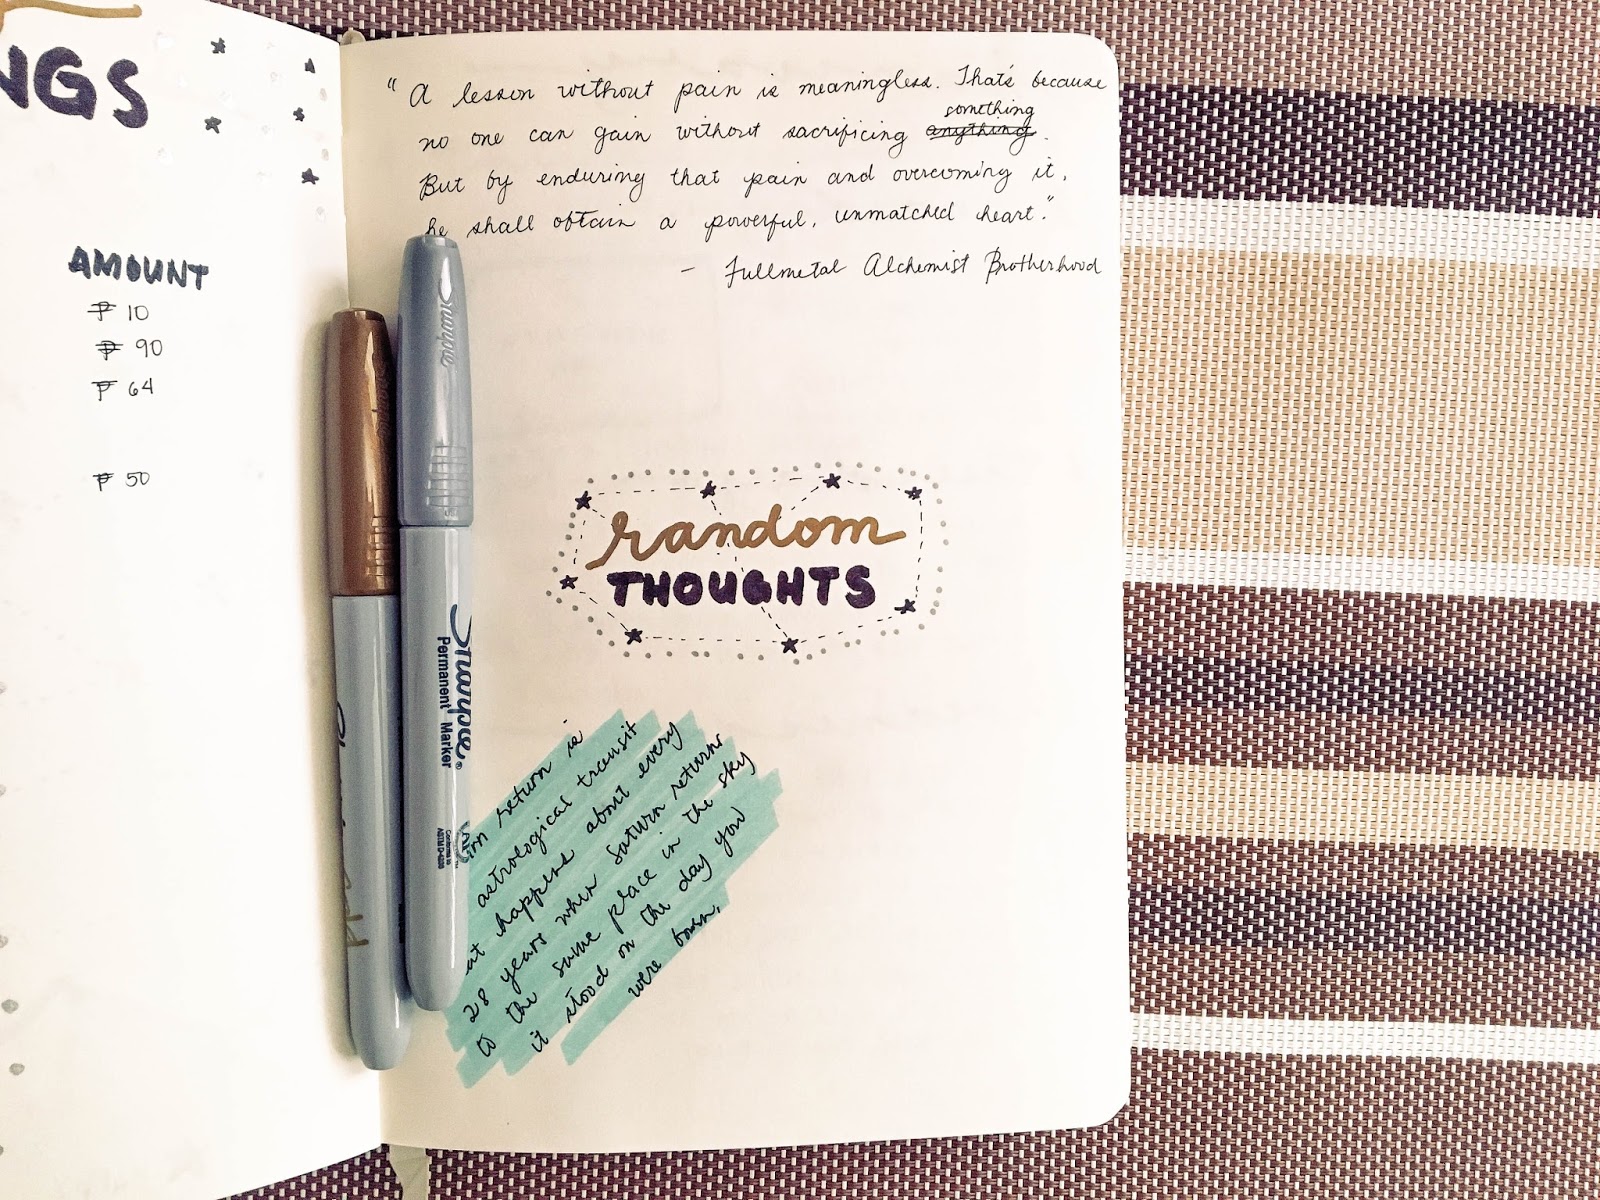 NGS
AMOUNT
₱ 10
₱ 90
₱ 64
₱ 50
"A lesson without pain is meaningless. That's because
something
no one can gain without sacrificing anything.
But by enduring that pain and overcoming it,
he shall obtain a powerful, unmatched heart."
- Fullmetal Alchemist Brotherhood
random
THOUGHTS
return is
astrological transit
at happens about every
28 years when Saturn returns
to the same place in the sky
it stood on the day you
were born.
Sharpie
Sharpie
Permanent Marker
Sharpie